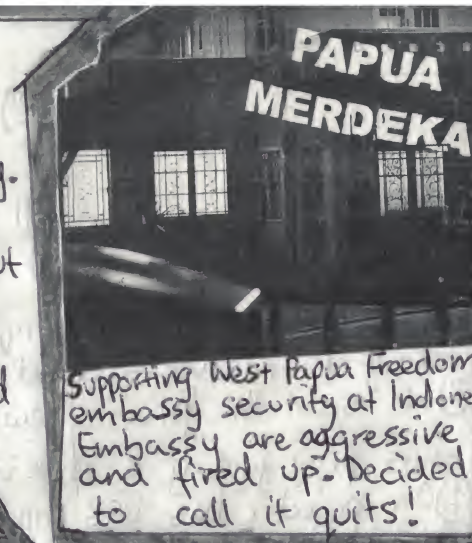 PAPUA
MERDEKA
ut
Supporting West Papua Freedom
embassy security at Indone
Embassy are aggressive
and fired up. Decided
to call it quits!